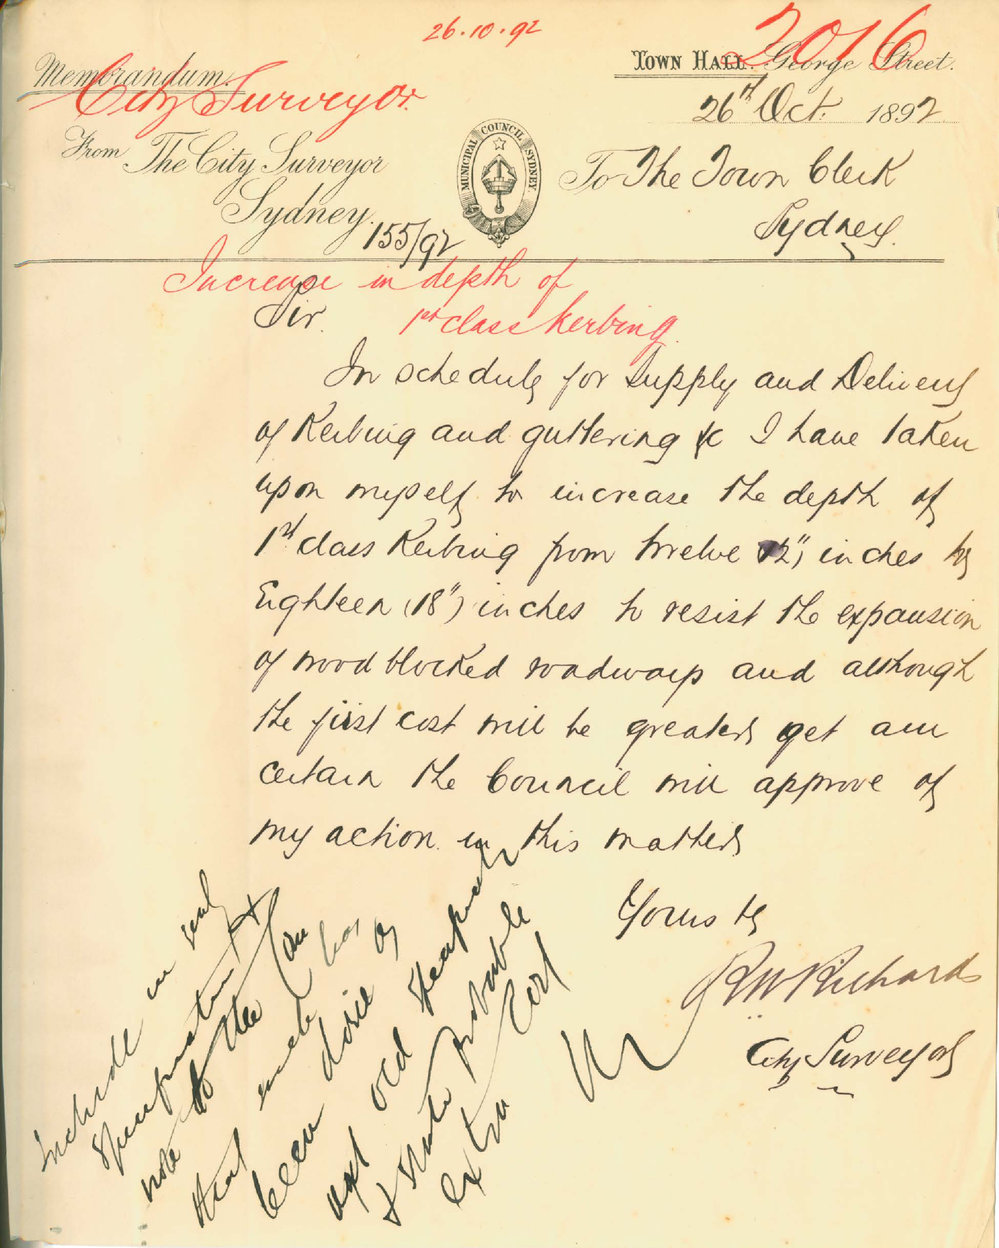 26.10.92
2016
Memorandum.
City Surveyor
Town Hall. George Street.
26th Oct. 1892
From The City Surveyor
Sydney.
155/92
MUNICIPAL COUNCIL SYDNEY
To The Town Clerk
Sydney.
Increase in depth of
1st class Kerbing
Sir.
In schedule for supply and Delivery
of Kerbing and guttering &c I have taken
upon myself to increase the depth of
1st class Kerbing from twelve 12") inches by
Eighteen (18") inches to resist the expansion
of wood blocked roadways and although
the first cost will be greater yet am
certain the Council will approve of
my action in this matter
Yours ty
R W Richards
City Surveyor
Include in
specification &
note to the
that such has
been done
old
& state probable
extra cost